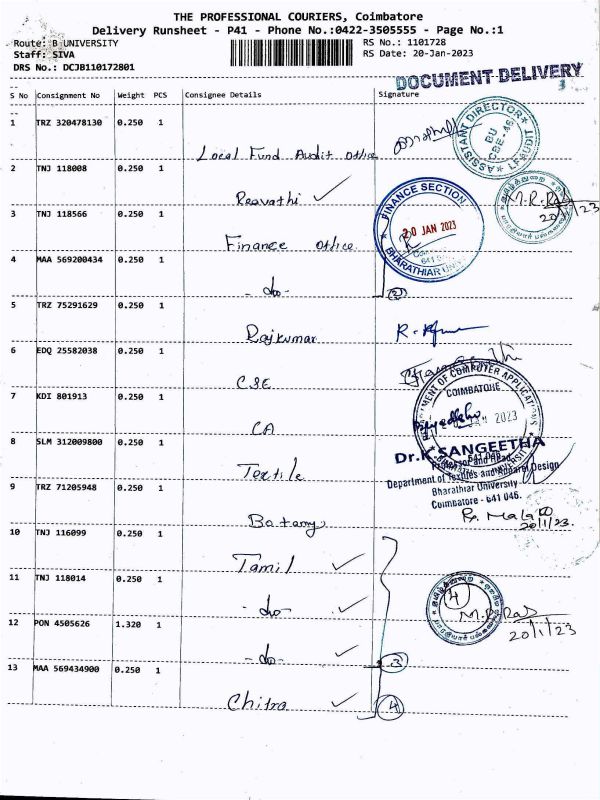 THE PROFESSIONAL COURIERS, Coimbatore
Delivery Runsheet - P41 - Phone No.:0422-3505555 - Page No.:1
Route: B UNIVERSITY
RS No.: 1101728
Staff: SIVA
RS Date: 20-Jan-2023
DRS No.: DCJB110172801
DOCUMENT DELIVERY
3
S No Consignment No Weight PCS Consignee Details Signature
1 TRZ 320478130 0.250 1 Local Fund Audit office
ASSISTANT DIRECTOR
LF AUDIT
BU
CBE-46
2 TNJ 118008 0.250 1 Reavathi ✓
M.R. Raj
20/1/23
3 TNJ 118566 0.250 1 Finance office
FINANCE SECTION
20 JAN 2023
641
BHARATHIAR UNIV
4 MAA 569200434 0.250 1 - do -
2
5 TRZ 75291629 0.250 1 Rajkumar
6 EDQ 25582038 0.250 1 CSE
7 KDI 801913 0.250 1 CA
MENT OF COMPUTER APPLICATI
COIMBATORE
JAN 2023
641 046
8 SLM 312009800 0.250 1 Textile
Dr.K.SANGEETHA
Professor and Head
Department of Textiles and Apparel Design
Bharathiar University
Coimbatore - 641 046.
9 TRZ 71205948 0.250 1 Botany
20/1/23.
10 TNJ 116099 0.250 1 Tamil ✓
11 TNJ 118014 0.250 1 - do - ✓
4
M.R. Raj
20/1/23
12 PON 4505626 1.320 1 - do - ✓
3
13 MAA 569434900 0.250 1 Chitra ✓
4